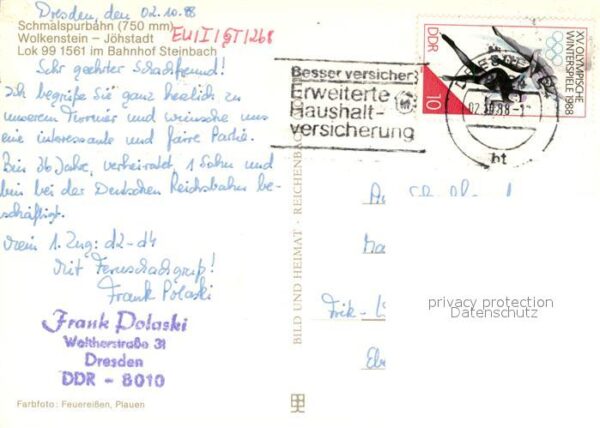 Dresden, den 02.10.88
Schmalspurbahn (750 mm)
Wolkenstein – Jöhstadt
Lok 99 1561 im Bahnhof Steinbach
EU/I/GT/268
Sehr geehrter Schachfreund!
Ich begrüße Sie ganz herzlich zu
unserem Turnier und wünsche uns
eine interessante und faire Partie.
Bin 36 Jahre, verheiratet, 1 Sohn und
bin bei der Deutschen Reichsbahn be-
schäftigt.
Mein 1. Zug: d2-d4
Mit Fernschachgruß!
Frank Polaski
Frank Polaski
Waltherstraße 31
Dresden
DDR - 8010
Farbfoto: Feuereißen, Plauen
BILD UND HEIMAT · REICHENBACH
Besser versichert
Erweiterte
Haushalt-
versicherung
DDR
10
XV. OLYMPISCHE
WINTERSPIELE 1988
02.10.88
ht
privacy protection
Datenschutz